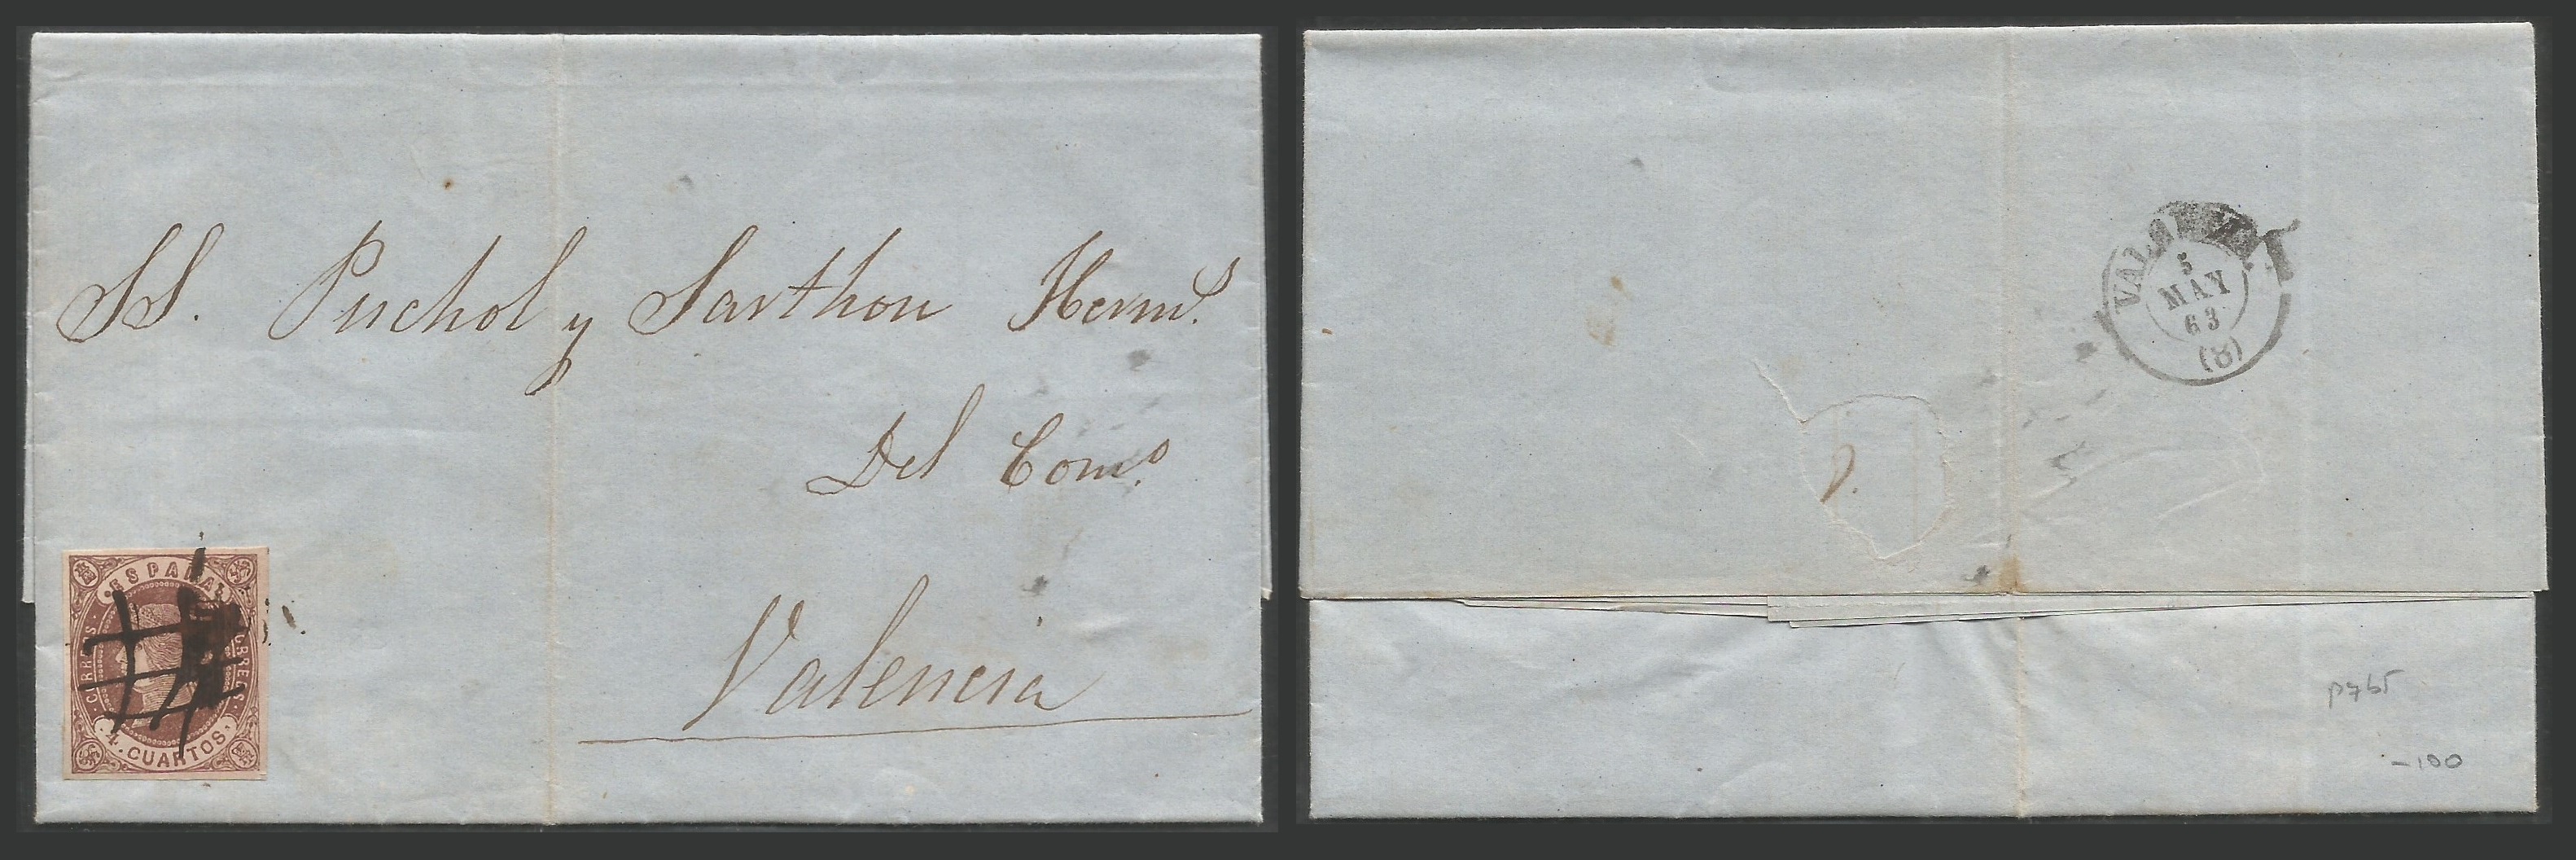 SS. Puchol y Sarthou Herms.
Del Como.
Valencia
ESPAÑA
CORREOS
CORREOS
4 CUARTOS
VALENCIA
5
MAY
63
(8)
-100